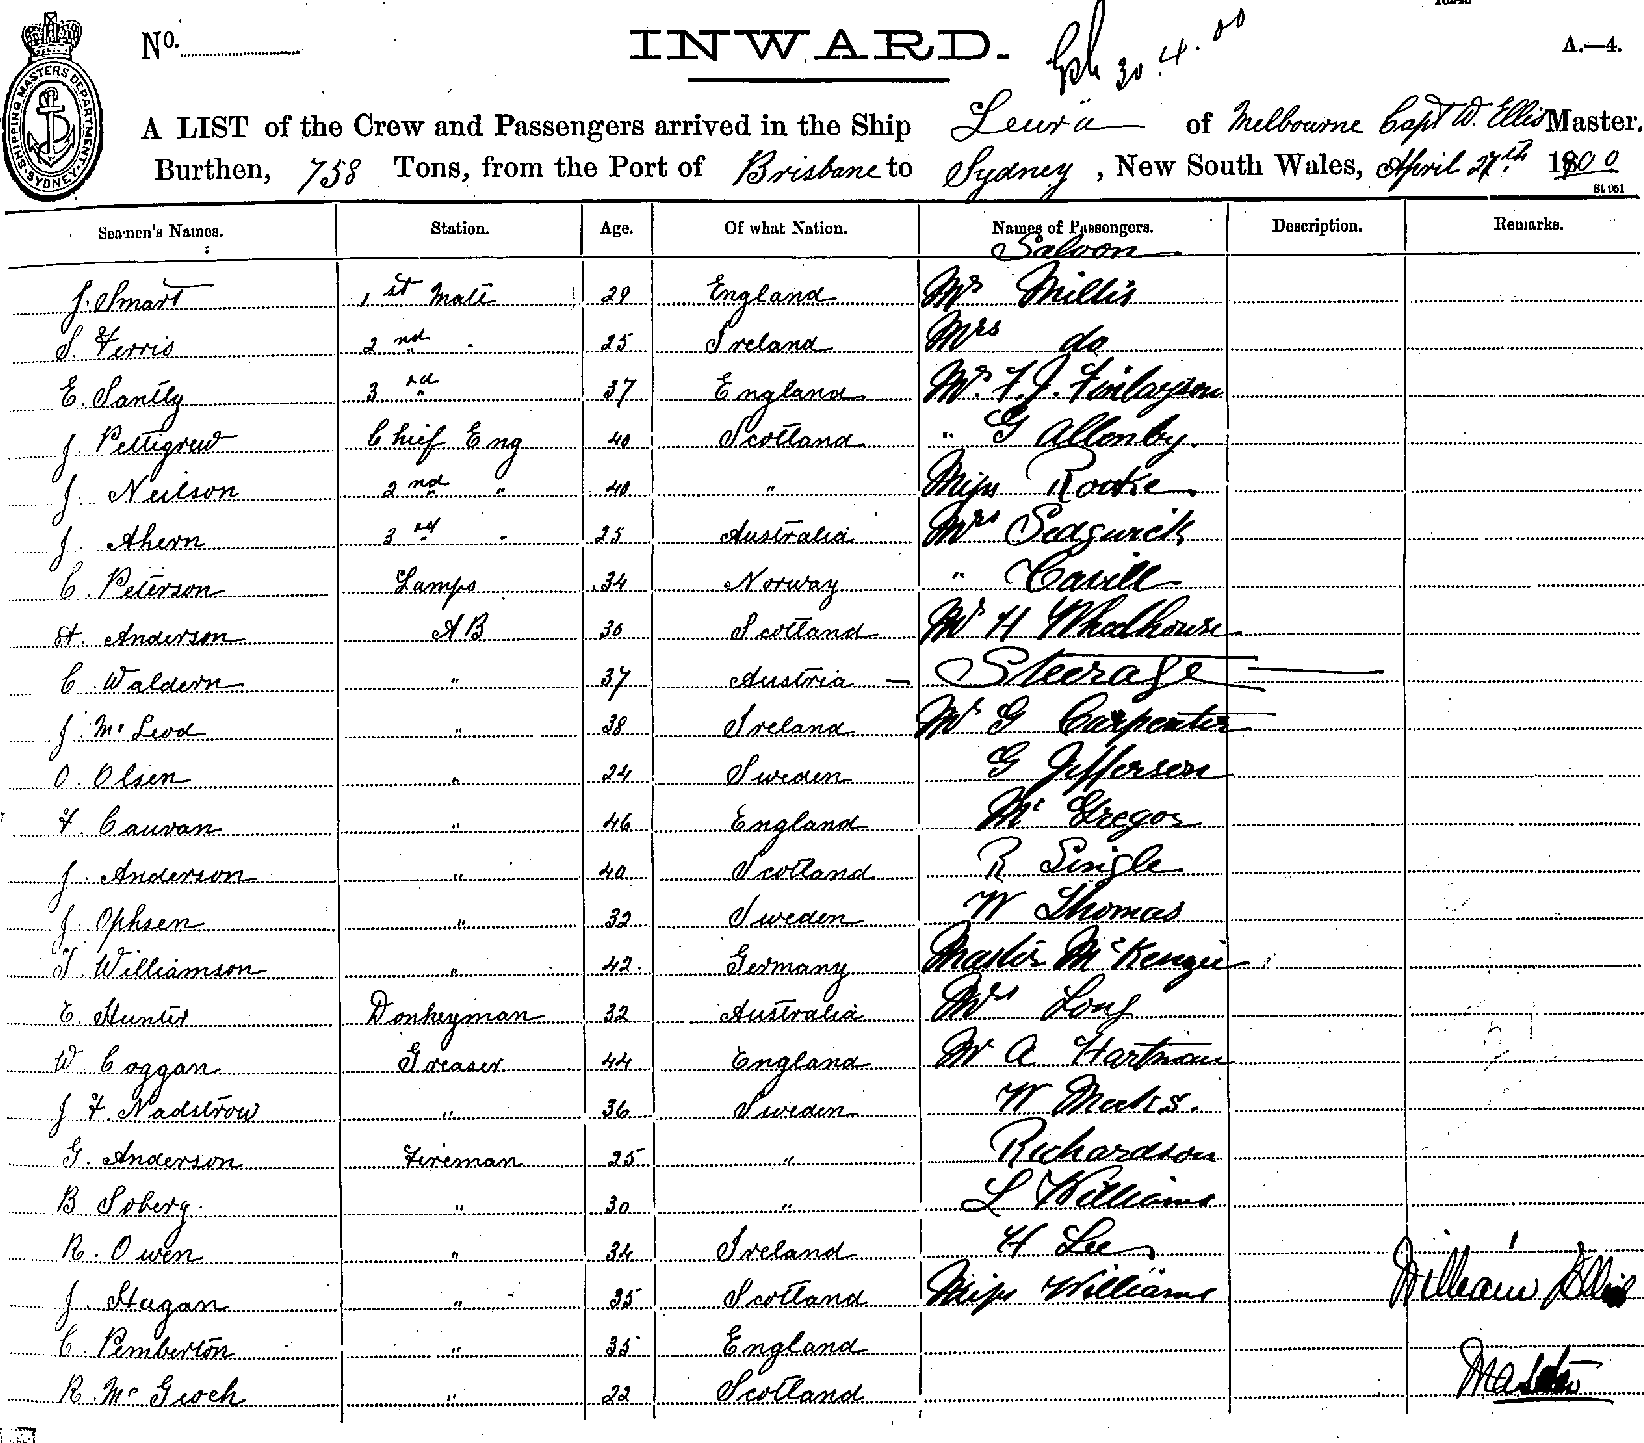 No.
INWARD.
30.4.00
A.—4.
SHIPPING MASTERS DEPARTMENT SYDNEY
A LIST of the Crew and Passengers arrived in the Ship Leura of Melbourne Capt W. Ellis Master.
Burthen, 758 Tons, from the Port of Brisbane to Sydney, New South Wales, April 27th 1900
Seamen's Names. Station. Age. Of what Nation. Names of Passengers. Description. Remarks.
Saloon
J. Smart 1st Mate 29 England Mr Millis
S. Ferris 2nd " 25 Ireland Mrs do
E. Santly 3rd " 37 England Mr. F. J. Finlayson
J. Pettigrew Chief Eng 40 Scotland " G Allenby.
J. Neilson 2nd " 40 " Miss Rooke
J. Ahern 3rd " 25 Australia Mrs Sedgwick
C. Peterson Lamps 34 Norway " Cavill
A. Anderson AB 30 Scotland Mr H Wheelhouse
C. Waldern " 37 Austria — Steerage
J. McLeod " 38 Ireland Mr G Carpenter
O. Olsen " 24 Sweden G Jefferson
F Cauvan " 46 England McGregor
J. Anderson " 40 Scotland R Single
J. Ophsen " 32 Sweden W Thomas
T Williamson " 42 Germany Master McKenzie
E. Hunter Donkeyman 32 Australia Mrs Long
W Coggan Greaser 44 England Mr A Hartman
J F Nadstrow " 36 Sweden W Meeks.
G. Anderson Fireman 25 " Richardson
B Soberg. " 30 " L Williams
R. Owen " 34 Ireland H Lee
J. Hagan " 35 Scotland Miss Williams William Ellis
C Pemberton " 35 England
R. McGeoch " 22 Scotland Master